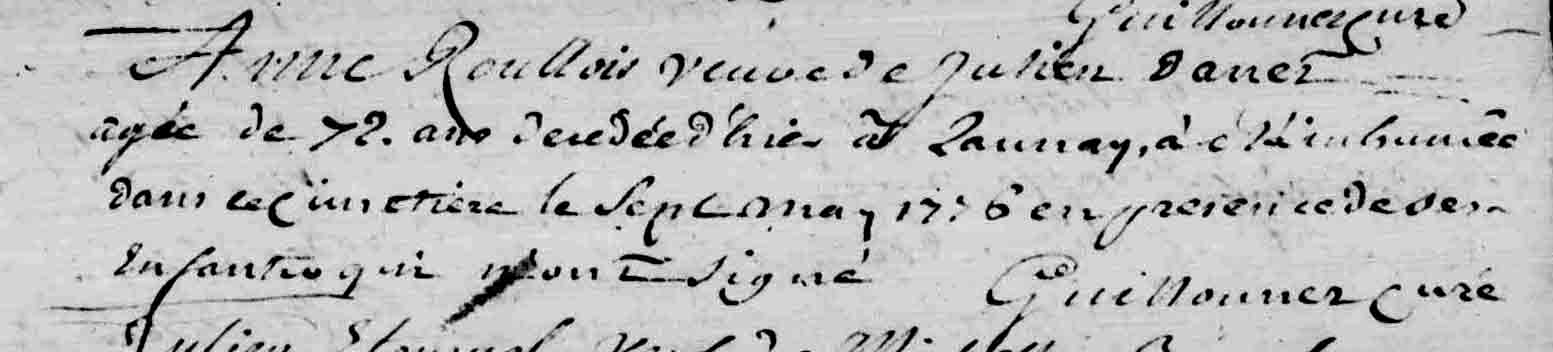 Guillonner curé
Anne Roullois veuve de Julien Daner
agée de 72. ans decedée d'hier a Launay, à été inhumée
dans le cimetiere le Sept may 1776 en presence de ses
Enfants qui n'ont signé Guillonner curé
Julien